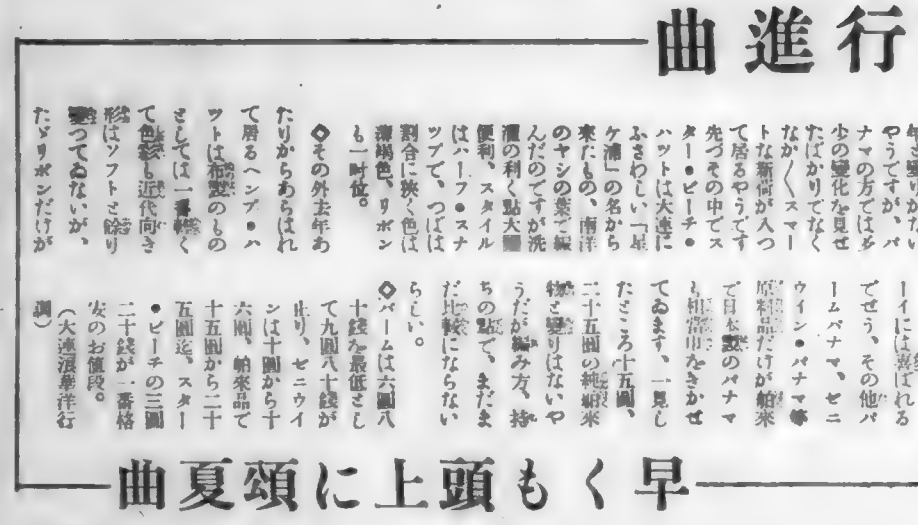 行進曲
やうですが、パ
ナマの方では多
少の變化を見せ
たばかりでなく
なか〱スマー
トな新荷が入つ
て居るやうです
先づその中でス
ター●ビーチ●
ハットは大連に
ふさわしい、「星
ケ浦」の名から
來たもの、南洋
のヤシの葉で編
んだのですが洗
濯の利く點大變
便利、スタイル
はハーフ●スナ
ツプで、つばは
割合に狹く色は
薄褐色、リボン
も一吋位。
◇その外去年あ
たりからあらはれ
て居るヘンプ●ハ
ツトは布製のもの
としては一番輕く
て色彩も近代向き
形はソフトと餘り
變つてゐないが、
たゞリボンだけが
ーイには喜ばれる
でせう、その他パ
ームパナマ、ゼニ
ウイン●パナマ等
原料品だけが舶來
で日本製のパナマ
も相當巾をきかせ
てゐます、一見し
たところ十五圓、
二十五圓の純舶來
物と變りはないや
うだが編み方、持
ちの點で、まだま
だ比較にならない
らしい。
◇パームは六圓八
十錢を最低とし
て九圓八十錢が
止り、ゼニウイ
ンは十圓から十
六圓、舶來品で
十五圓から二十
五圓迄、スター
●ビーチの三圓
二十錢が一番格
安のお値段。
(大連浪華洋行
調)
早くも頭上に頌夏曲